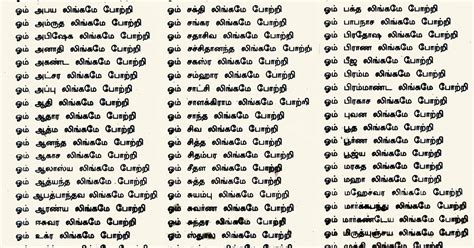 ஓம் அபய லிங்கமே போற்றி
ஓம் அம்ருத லிங்கமே போற்றி
ஓம் அபிஷேக லிங்கமே போற்றி
ஓம் அனாதி லிங்கமே போற்றி
ஓம் அகண்ட லிங்கமே போற்றி
ஓம் அட்சர லிங்கமே போற்றி
ஓம் அப்பு லிங்கமே போற்றி
ஓம் ஆதி லிங்கமே போற்றி
ஓம் ஆதார லிங்கமே போற்றி
ஓம் ஆத்ம லிங்கமே போற்றி
ஓம் ஆனந்த லிங்கமே போற்றி
ஓம் ஆகாச லிங்கமே போற்றி
ஓம் ஆலாஸ்ய லிங்கமே போற்றி
ஓம் ஆத்யந்த லிங்கமே போற்றி
ஓம் ஆபத்பாந்தவ லிங்கமே போற்றி
ஓம் ஆரண்ய லிங்கமே போற்றி
ஓம் ஈசுவர லிங்கமே போற்றி
ஓம் உக்ர லிங்கமே போற்றி
ஓம் சக்தி லிங்கமே போற்றி
ஓம் சங்கர லிங்கமே போற்றி
ஓம் சதாசிவ லிங்கமே போற்றி
ஓம் சச்சிதானந்த லிங்கமே போற்றி
ஓம் சகஸ்ர லிங்கமே போற்றி
ஓம் சம்ஹார லிங்கமே போற்றி
ஓம் சாட்சி லிங்கமே போற்றி
ஓம் சாளக்கிராம லிங்கமே போற்றி
ஓம் சாந்த லிங்கமே போற்றி
ஓம் சிவ லிங்கமே போற்றி
ஓம் சித்த லிங்கமே போற்றி
ஓம் சிதம்பர லிங்கமே போற்றி
ஓம் சீதள லிங்கமே போற்றி
ஓம் சுத்த லிங்கமே போற்றி
ஓம் சுயம்பு லிங்கமே போற்றி
ஓம் சுவர்ண லிங்கமே போற்றி
ஓம் சுந்தர லிங்கமே போற்றி
ஓம் லிங்கமே போற்றி
ஓம் பக்த லிங்கமே போற்றி
ஓம் பாபநாச லிங்கமே போற்றி
ஓம் பிரதோஷ லிங்கமே போற்றி
ஓம் பிராண லிங்கமே போற்றி
ஓம் பீஜ லிங்கமே போற்றி
ஓம் பிரம்ம லிங்கமே போற்றி
ஓம் பிரம்மாண்ட லிங்கமே போற்றி
ஓம் பிரகாச லிங்கமே போற்றி
ஓம் புவன லிங்கமே போற்றி
ஓம் பூத லிங்கமே போற்றி
ஓம் பூர்ண லிங்கமே போற்றி
ஓம் பூஜ்ய லிங்கமே போற்றி
ஓம் மரகத லிங்கமே போற்றி
ஓம் மஹா லிங்கமே போற்றி
ஓம் மஹேசுவர லிங்கமே போற்றி
ஓம் மார்க்கபந்து லிங்கமே போற்றி
ஓம் மார்கண்டேய லிங்கமே போற்றி
ஓம் மிருத்யுஞ்சய லிங்கமே போற்றி